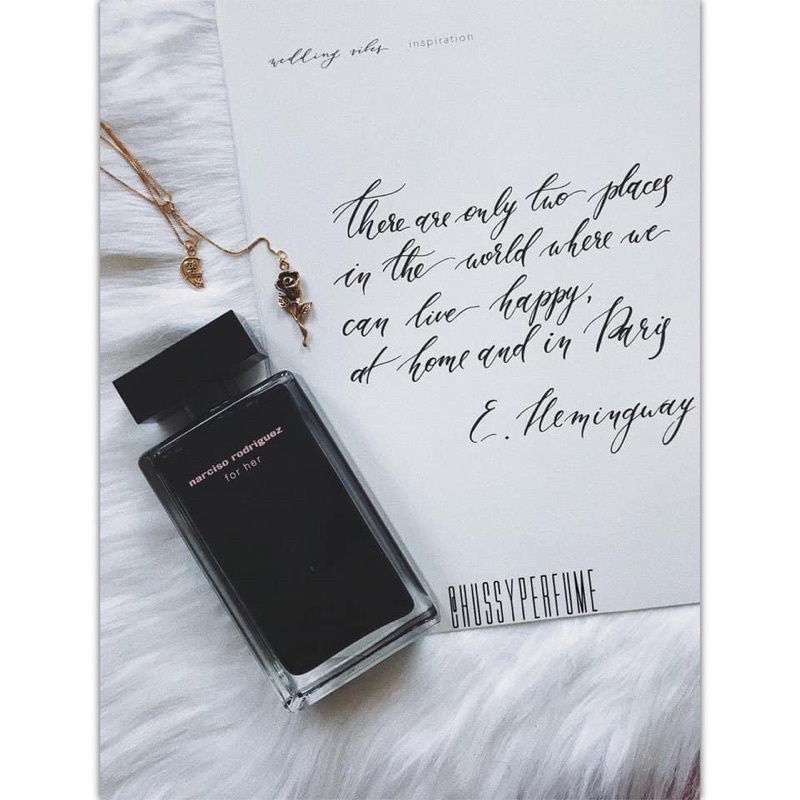 wedding vibes inspiration
there are only two places
in the world where we
can live happy,
at home and in Paris
E. Hemingway
narciso rodriguez
for her
@HUSSYPERFUME